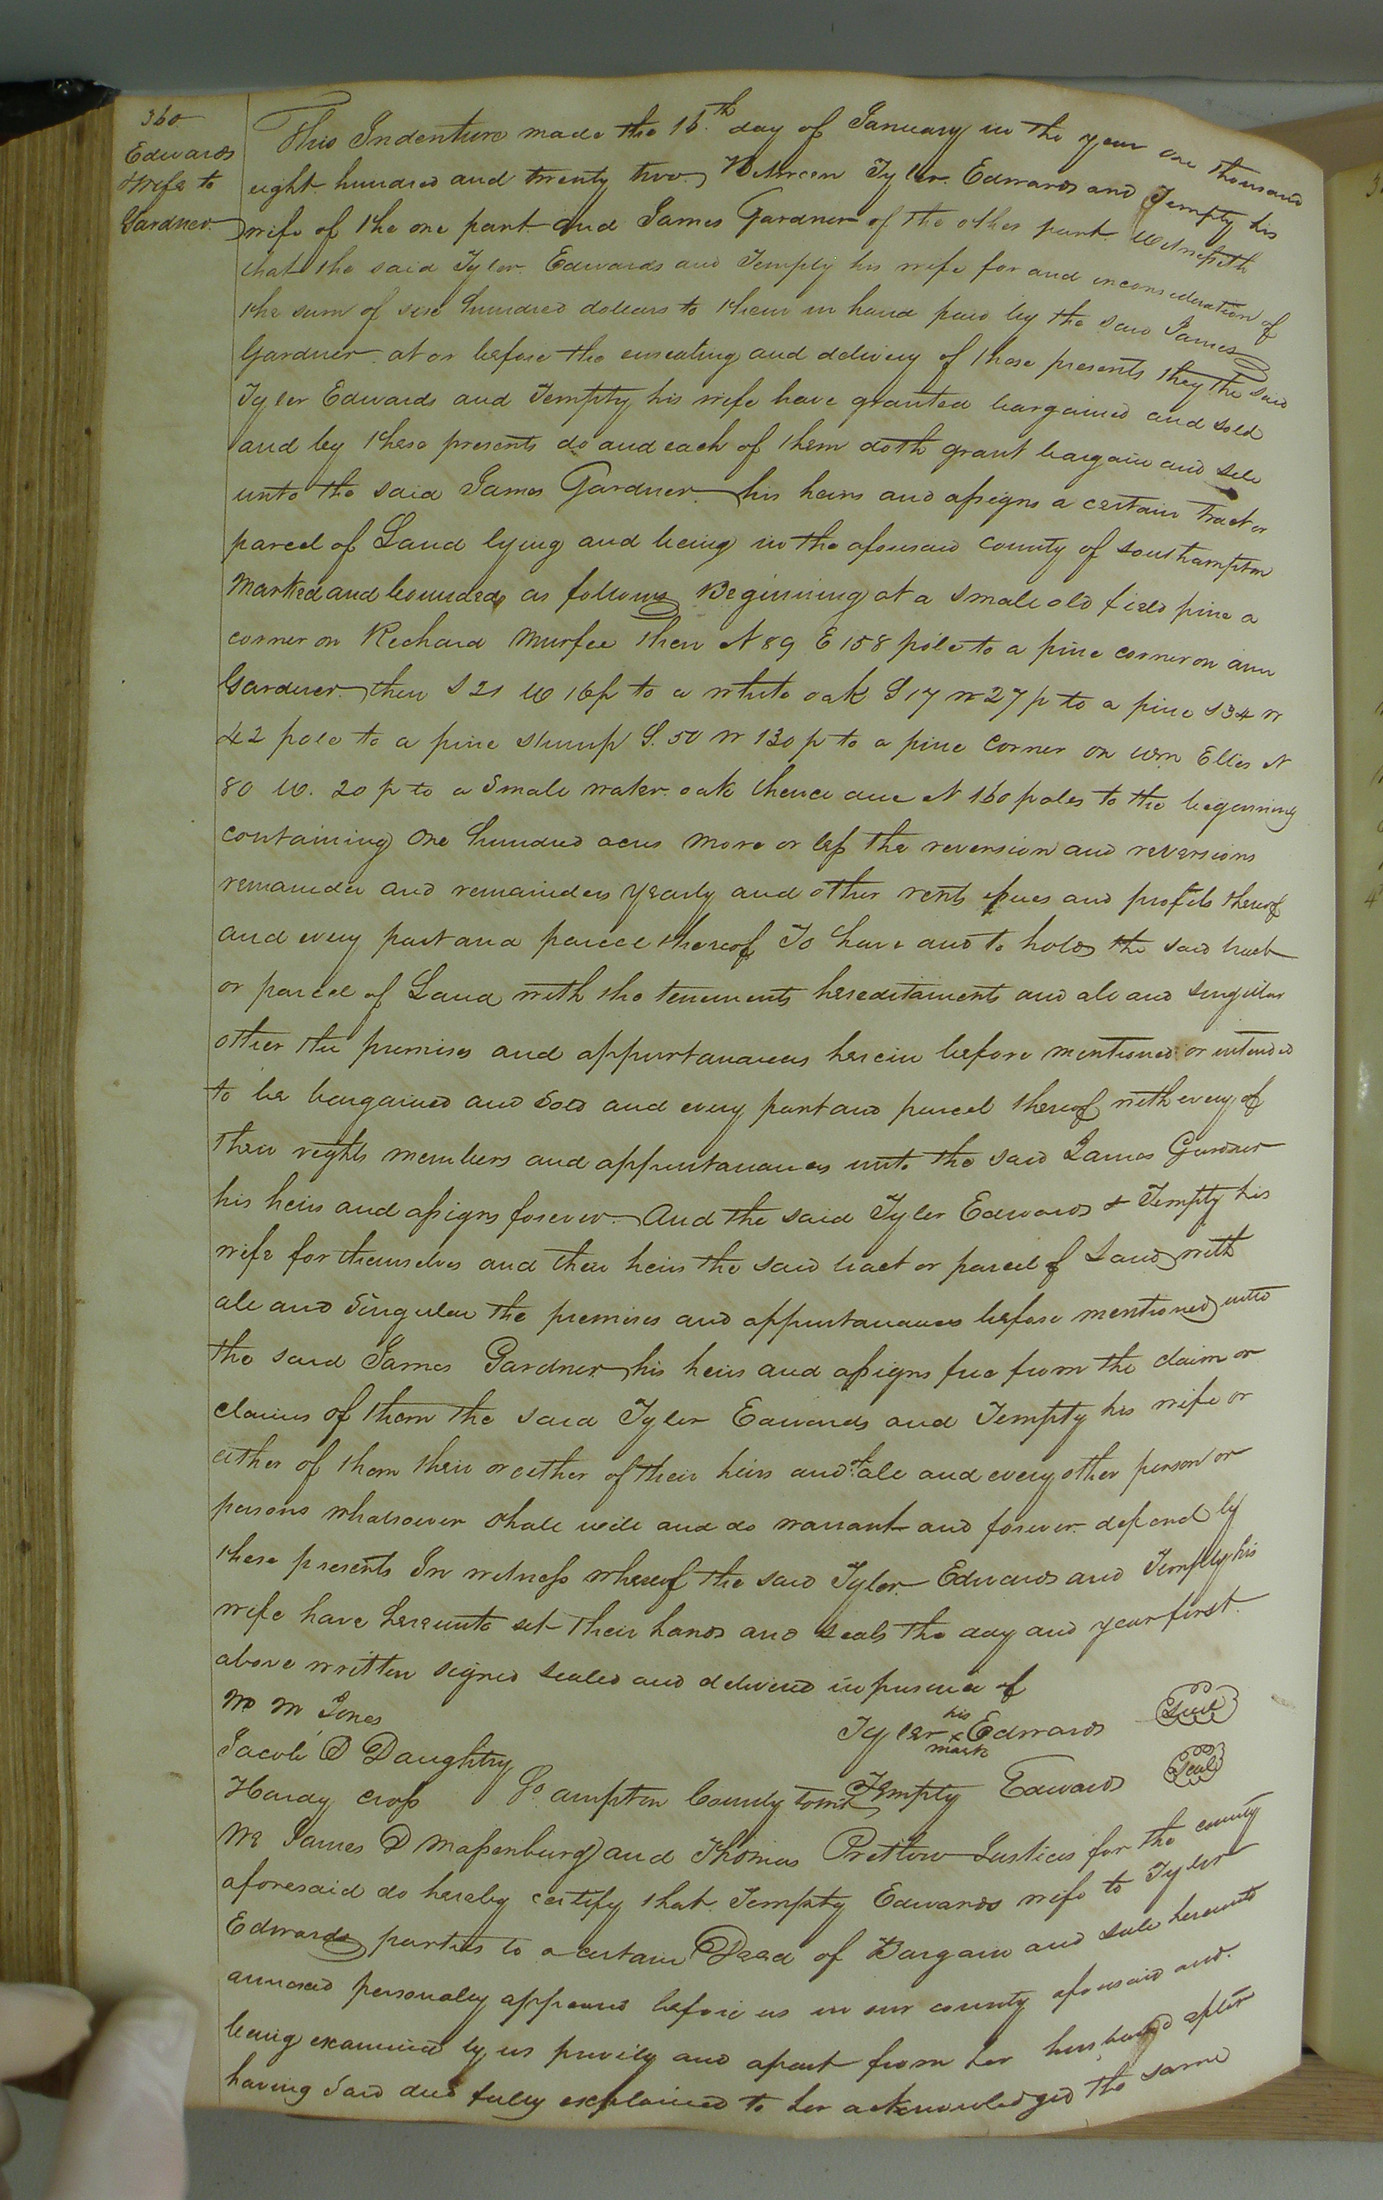 360
Edwards
& Wife to
Gardner
This Indenture made the 15th day of January in the year one thousand
eight hundred and twenty two Between Tyler Edwards and Tempty his
wife of the one part and James Gardner of the other part Witnesseth
that the said Tyler Edwards and Tempty his wife for and in consideration of
the sum of six hundred dollars to them in hand paid by the said James
Gardner at or before the ensealing and delivery of these presents they the said
Tyler Edwards and Tempty his wife have granted bargained and sold
and by these presents do and each of them doth grant bargain and sell
unto the said James Gardner his heirs and assigns a certain Tract or
parcel of Land lying and being in the aforesaid county of Southampton
Marked and bounded as follows Beginning at a small old field pine a
corner on Richard Murfee then N 89 E 158 pole to a pine corner on ann
Gardner then S 21 W 16 p to a white oak S 17 W 27 p to a pine S 34 W
42 pole to a pine stump S. 50 W 130 p to a pine corner on Wm Ellis N
80 W. 20 p to a small water oak thence due N 160 poles to the beginning
containing One hundred acres more or less the reversion and reversions
remainder and remainders yearly and other rents issues and profits thereof
and every part and parcel thereof To have and to hold the said tract
or parcel of Land with the tenements hereditaments and all and singular
other the premises and appurtanances herein before mentioned or intended
to be bargained and Sold and every part and parcel thereof with every of
their rights members and appurtanances unto the said James Gardner
his heirs and assigns forever. And the said Tyler Edwards & Tempty his
wife for themselves and their heirs the said tract or parcel of Land with
all and Singular the premises and appurtanances before mentioned unto
the said James Gardner his heirs and assigns free from the claim or
claims of them the said Tyler Edwards and Tempty his wife or
either of them their or either of their heirs and of all and every other person or
persons whatsoever shall will and do warrant and forever defend by
these presents In witness whereof the said Tyler Edwards and Tempty his
wife have hereunto set their hands and seals the day and year first
above written signed sealed and delivered in presence of
W M Jones
Tyler his x mark Edwards Seal
Jacob D Daughtry
Tempty Edwards Seal
Hardy Cross So ampton County towit
We James D Massenburg and Thomas Pretlow Justices for the county
aforesaid do hereby certify that Tempty Edwards wife to Tyler
Edwards parties to a certain Deed of Bargain and sale hereunto
annexed personally appeared before us in our county aforesaid and
being examined by us privily and apart from her husband after
having said deed fully explained to her acknowledged the same